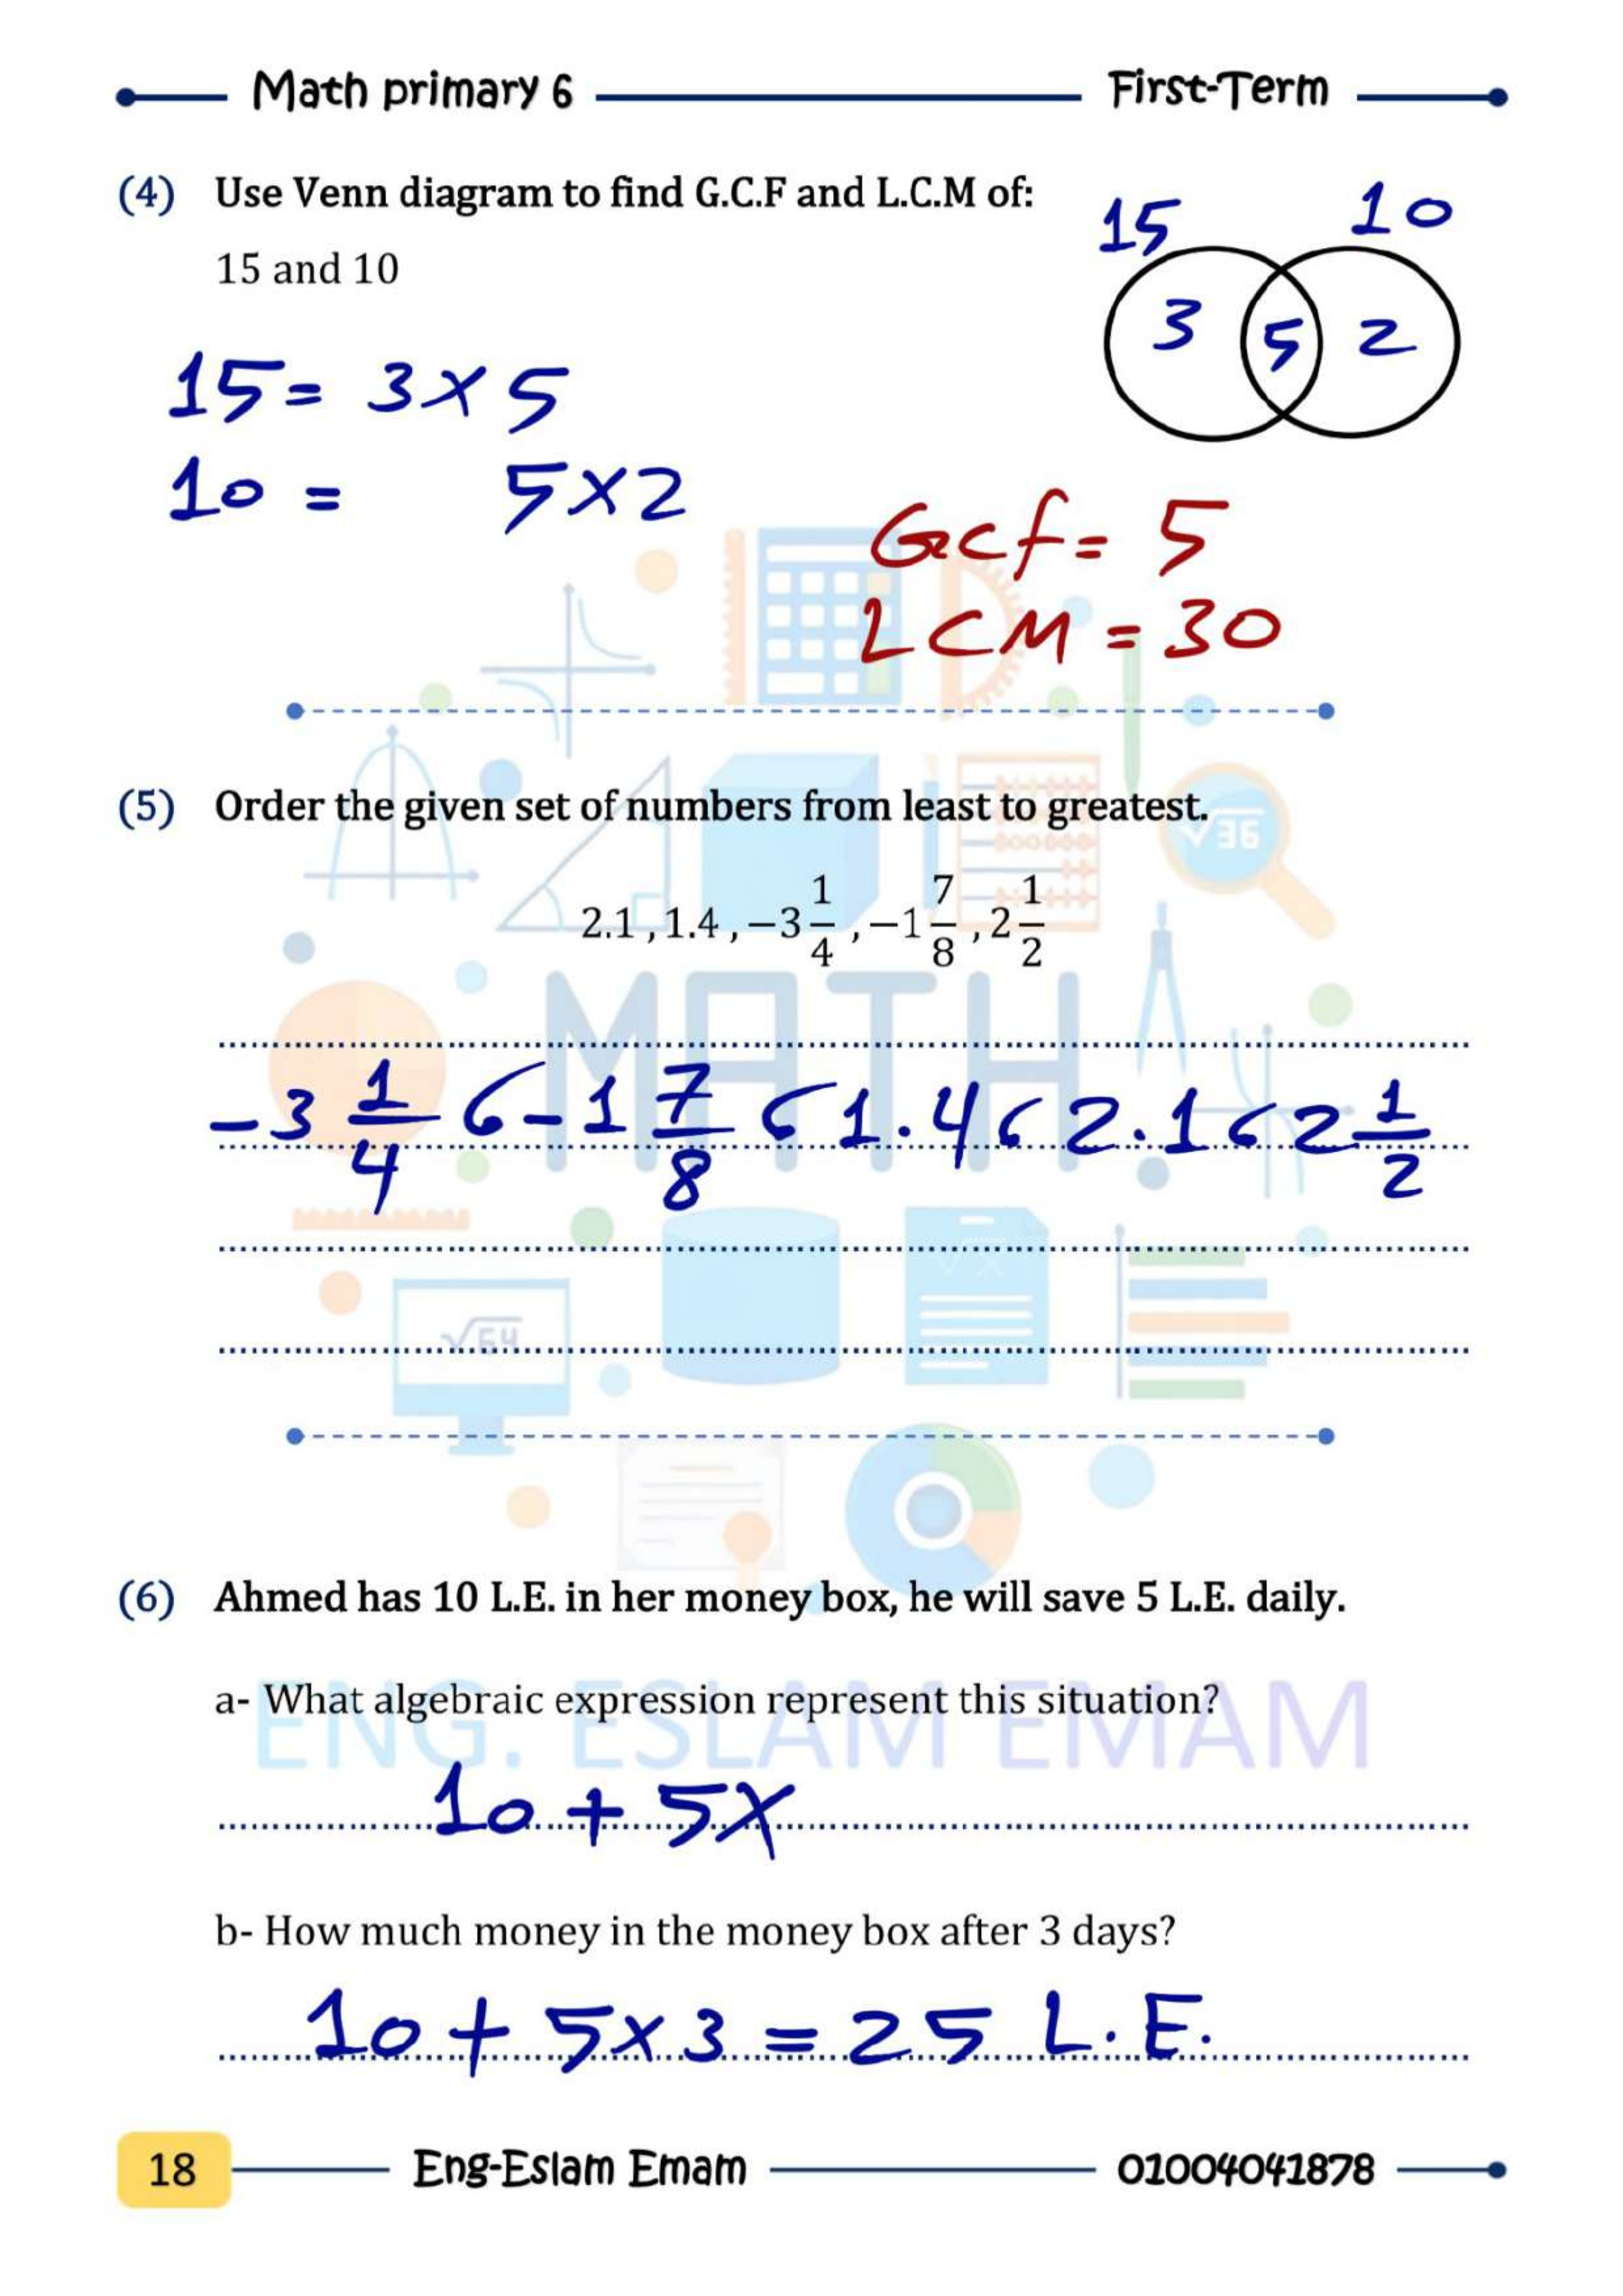 Math primary 6 First-Term
(4) Use Venn diagram to find G.C.F and L.C.M of:
15 and 10
15 10
3 5 2
15 = 3 × 5
10 = 5 × 2
GCF = 5
LCM = 30
(5) Order the given set of numbers from least to greatest.
√36
2.1 , 1.4 , −3 1/4 , −1 7/8 , 2 1/2
MATH
−3 1/4 , −1 7/8 , 1.4 , 2.1 , 2 1/2
√x
√64
(6) Ahmed has 10 L.E. in her money box, he will save 5 L.E. daily.
a- What algebraic expression represent this situation?
ENG. ESLAM EMAM
10 + 5x
b- How much money in the money box after 3 days?
10 + 5×3 = 25 L.E.
18 Eng-Eslam Emam 01004041878